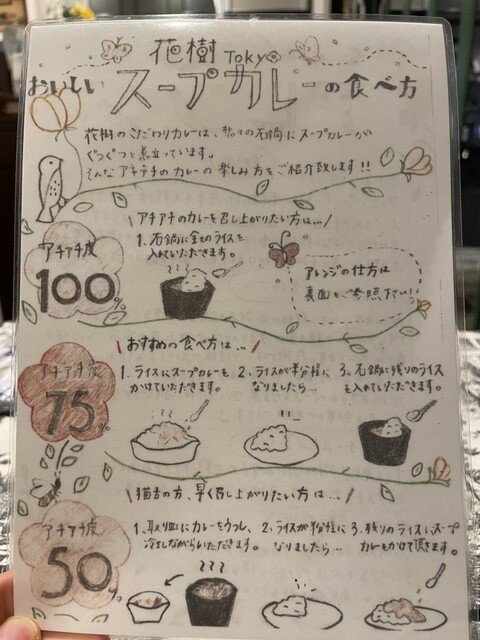 花樹 Tokyo
おいしい スープカレーの食べ方
花樹のこだわりカレーは、熱々の石鍋にスープカレーが
ぐつぐつと煮立っています。
そんなアチアチのカレーの楽しみ方をご紹介致します!!
アチアチ度
100%
\ アチアチのカレーを召し上がりたい方は… /
1. 石鍋に全てのライスを
入れていただきます。
アレンジの仕方は
裏面をご参照下さい!
アチアチ度
75%
\ おすすめの食べ方は… /
1. ライスにスープカレーを
かけていただきます。
2. ライスが半分程に
なりましたら…
3. 石鍋に残りのライス
を入れていただきます。
アチアチ度
50%
\ 猫舌の方、早く召し上がりたい方は… /
1. 取り皿にカレーをうつし、
冷ましながらいただきます。
2. ライスが半分程に
なりましたら…
3. 残りのライスにスープ
カレーをかけて頂きます。